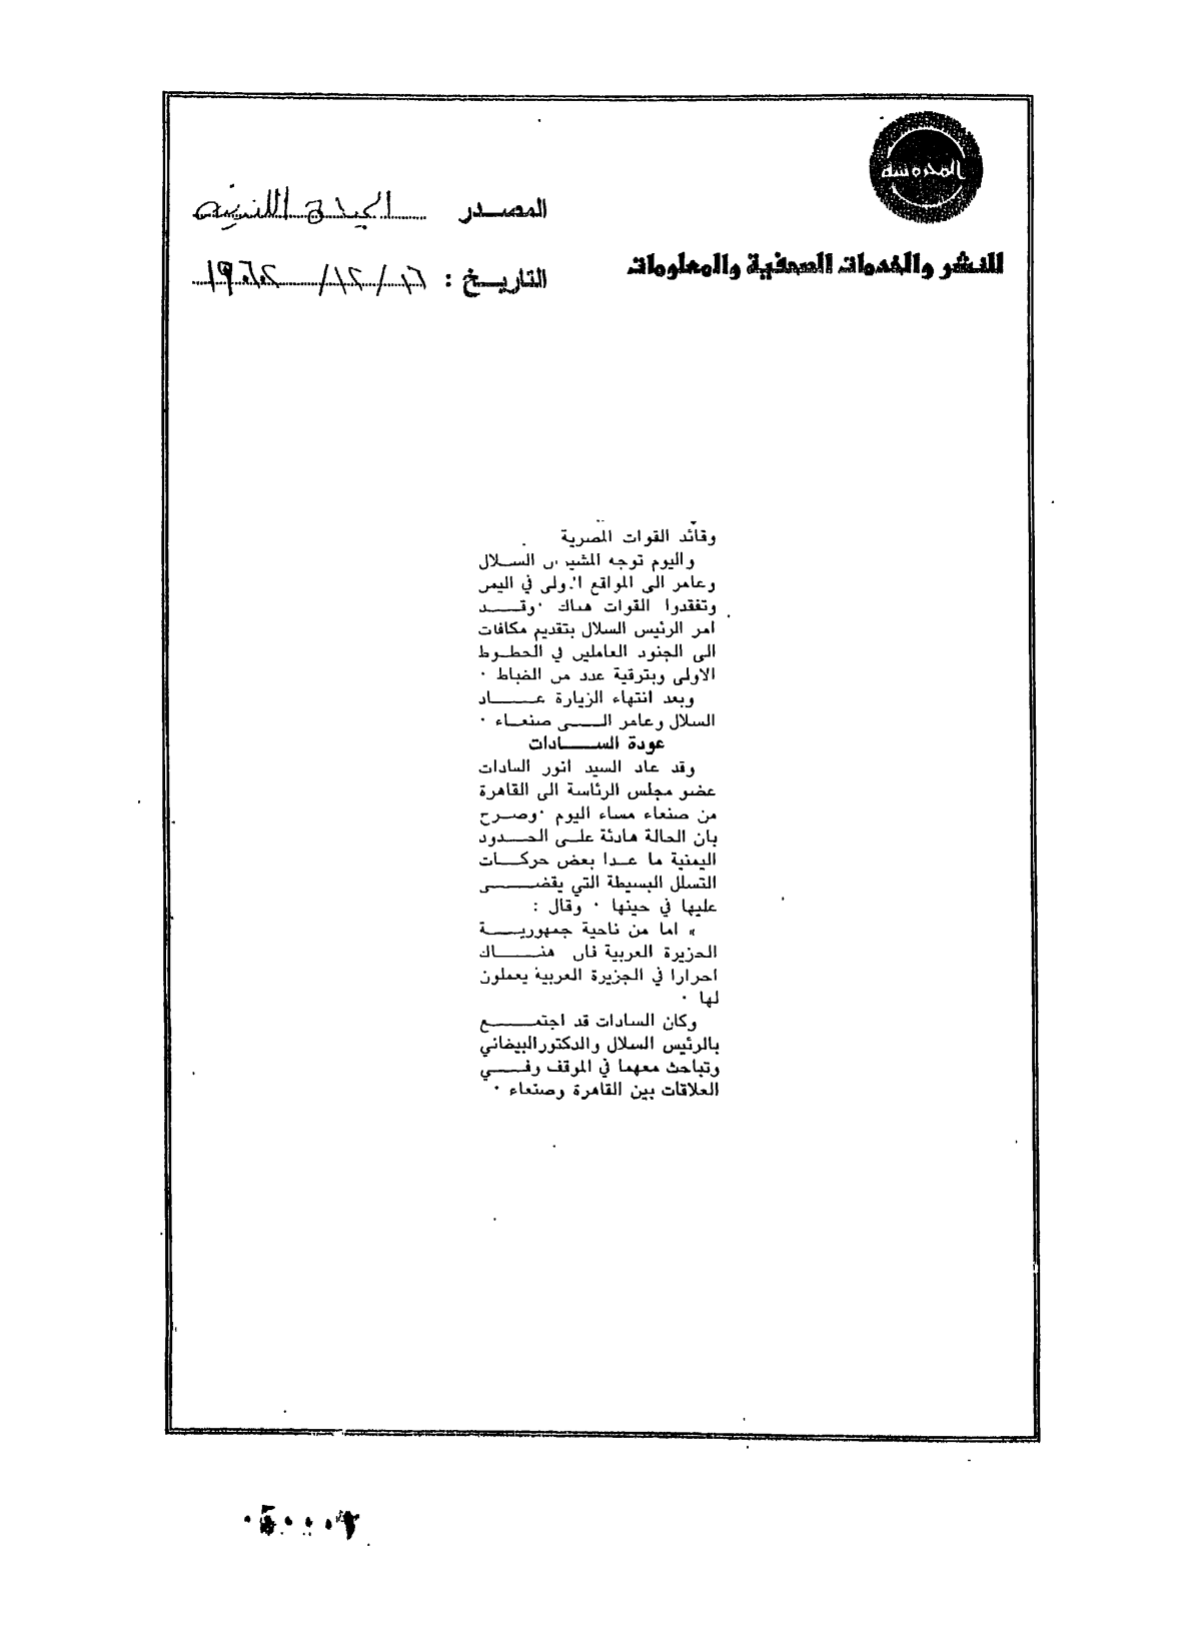 المحروسة
للنشر والخدمات الصحفية والمعلومات
المصدر الحياة اللندنية
التاريخ : ١٦ / ١٢ / ١٩٦٢
وقائد القوات المصرية
واليوم توجه المشيران الســلال
وعامر الى المواقع الاولى في اليمن
وتفقدوا القوات هناك ٠ وقــــد
امر الرئيس السلال بتقديم مكافات
الى الجنود العاملين في الخطــوط
الاولى وبترقية عدد من الضباط ٠
وبعد انتهاء الزيارة عـــــاد
السلال وعامر الــــى صنعــاء ٠
عودة الســــادات
وقد عاد السيد انور السادات
عضو مجلس الرئاسة الى القاهرة
من صنعاء مساء اليوم ٠ وصــرح
بان الحالة هادئة علــى الحــدود
اليمنية ما عــدا بعض حركــات
التسلل البسيطة التي يقضــــى
عليها في حينها ٠ وقال :
» اما من ناحية جمهوريــــة
الجزيرة العربية فان هنــــاك
احرارا في الجزيرة العربية يعملون
لها ٠
وكان السادات قد اجتمــــع
بالرئيس السلال والدكتور البيضاني
وتباحث معهما في الموقف وفــــي
العلاقات بين القاهرة وصنعاء ٠